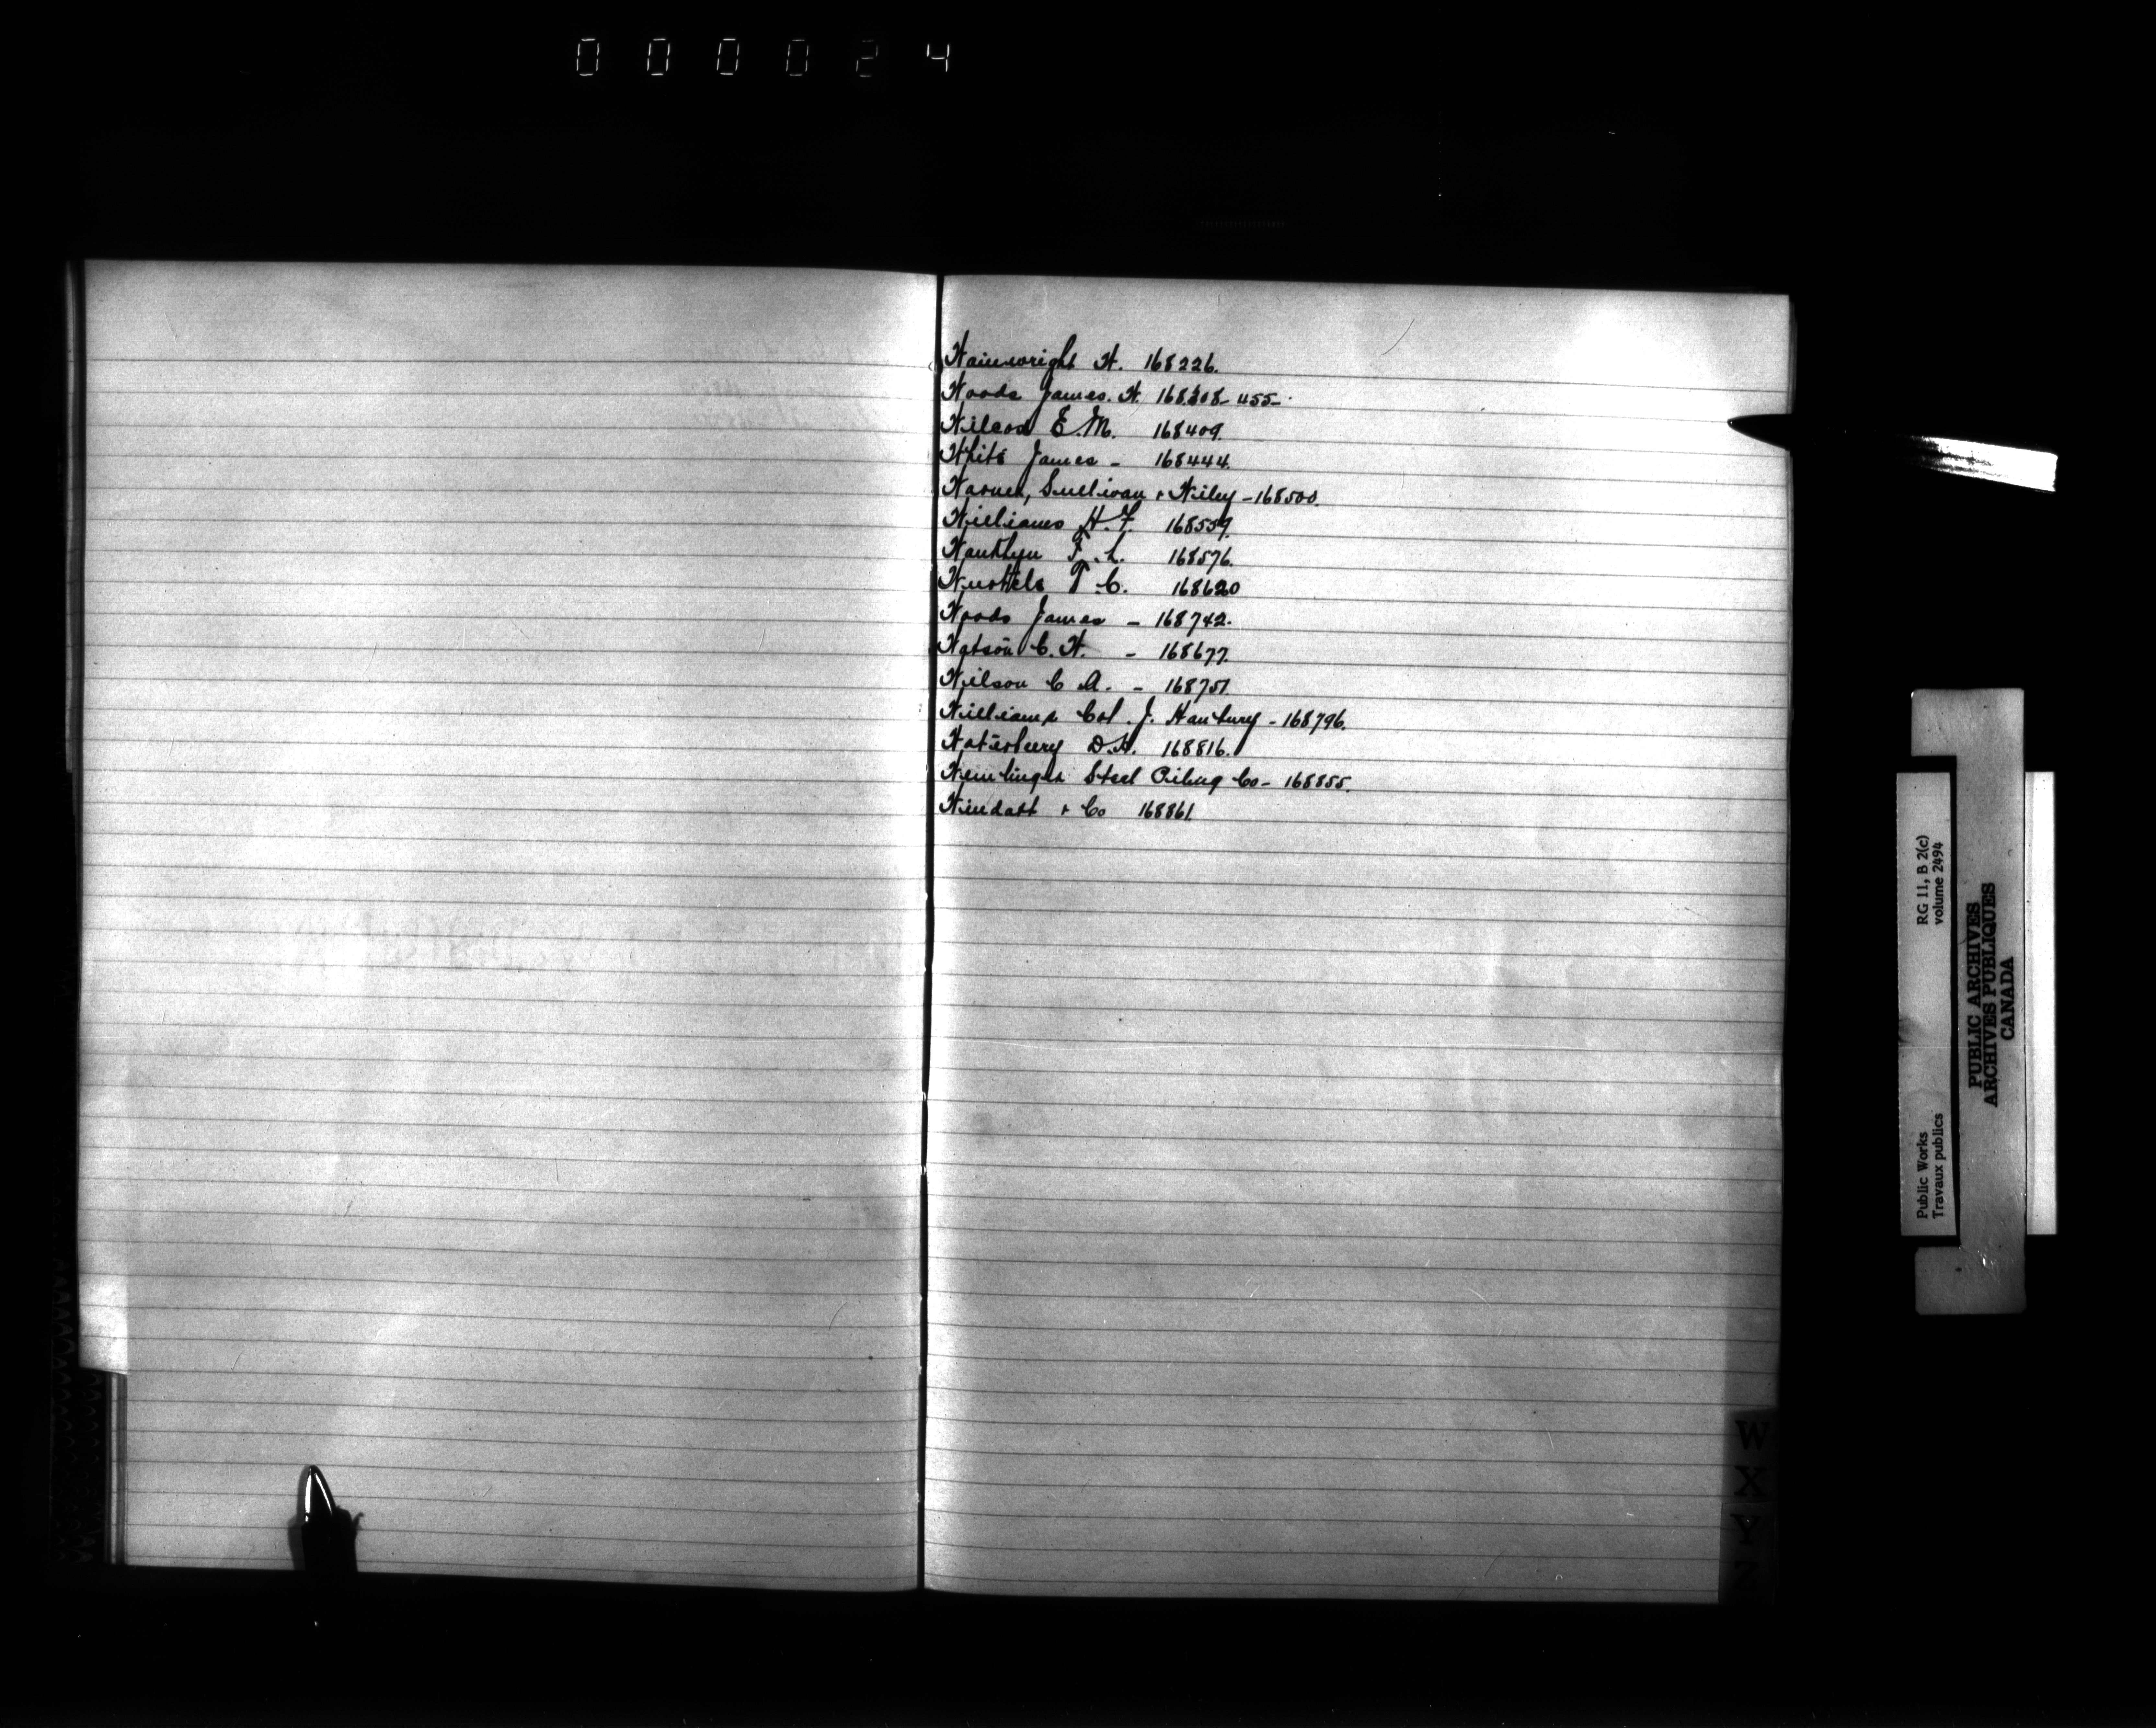 000024
Wainwright W. 168226.
Woods James. W. 168308-455-
Wilcox E. M. 168409.
White James - 168444.
Warner, Sullivan + Wiley - 168500.
Williams H. F. 168559.
F. L. 168576.
T C. 168620
Woods James - 168742.
Watson C. W. - 168677.
Wilson C A. - 168751.
Williams Col. J. Hanbury - 168796.
Waterbury D. H. 168816.
Wemlinger Steel Piling Co - 168855.
Windatt + Co 168861.
W
X
Y
Z
Public Works
Travaux publics
RG 11, B 2(c)
volume 2494
PUBLIC ARCHIVES
ARCHIVES PUBLIQUES
CANADA